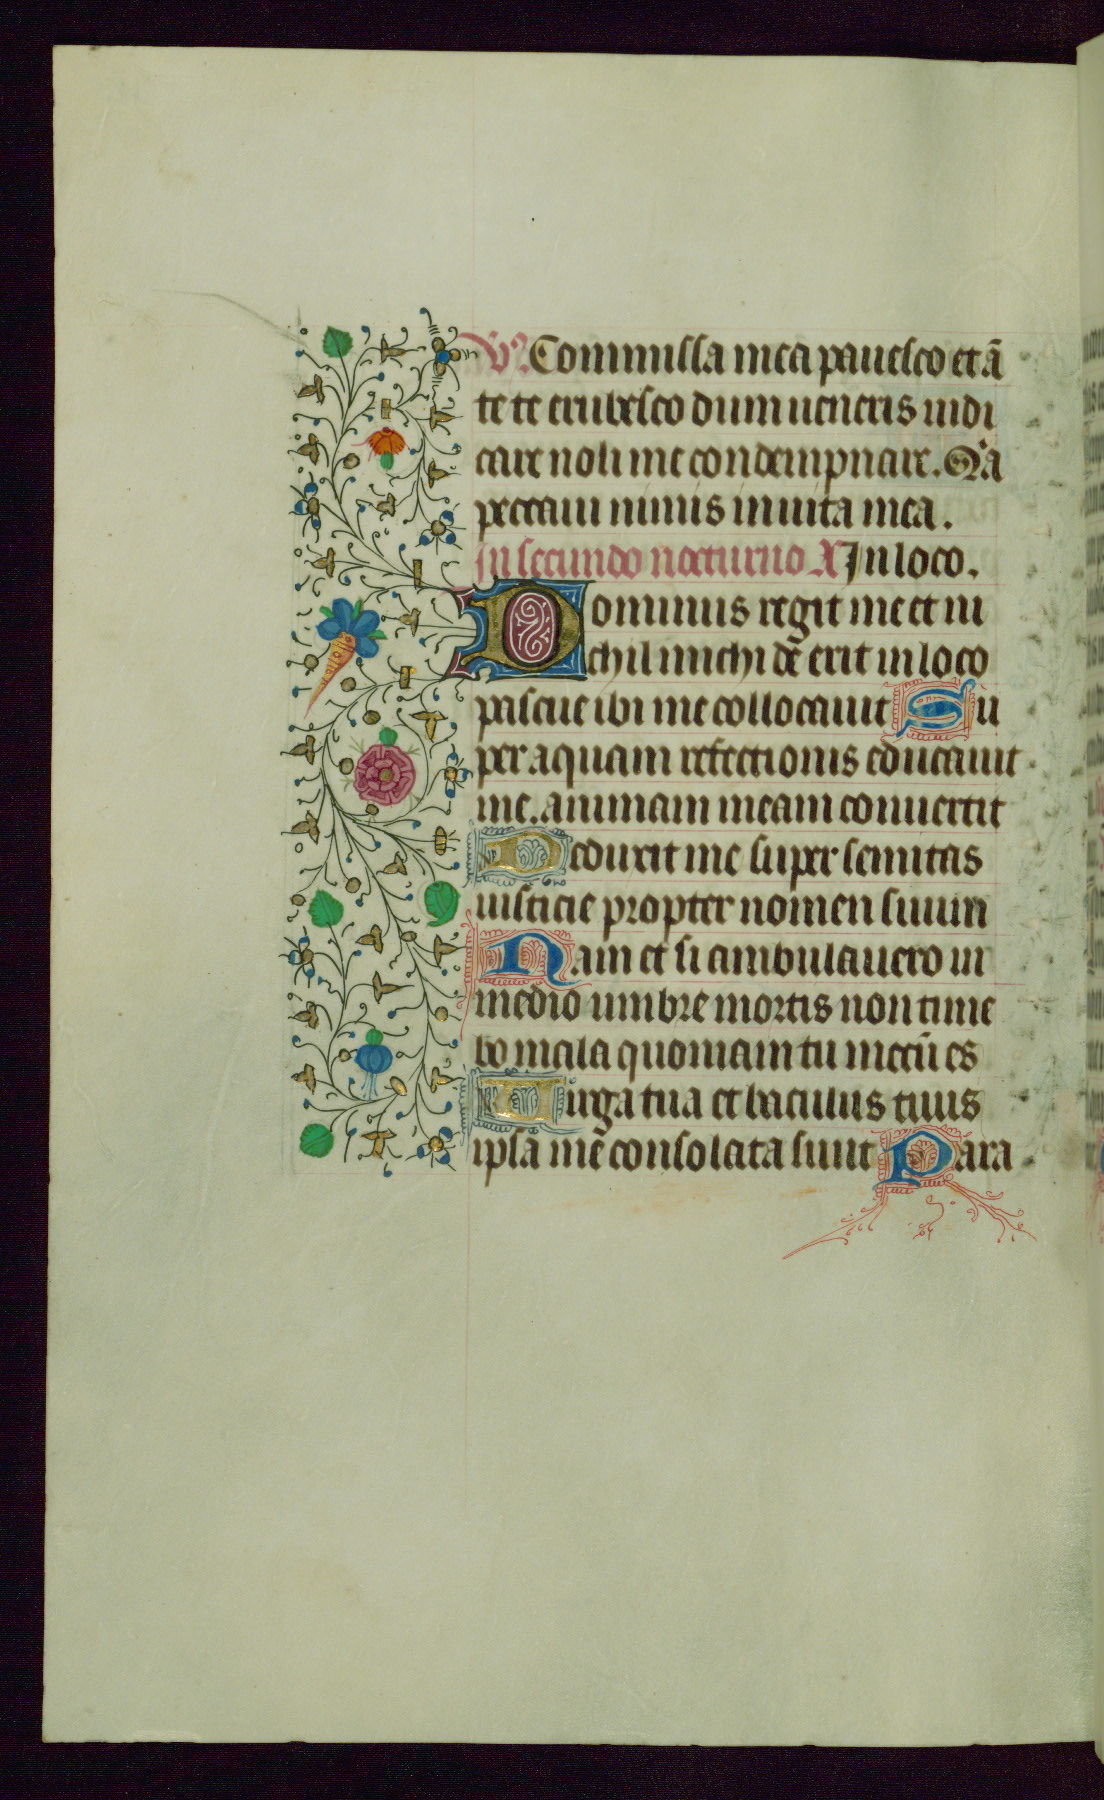 V̷. Commissa mea pauesco et ā
te te erubesco dum ueneris iudi
care noli me condempnare. Q̄a
peccaui nimis in uita mea.
In secundo nocturno A̷ In loco.
Dominus regit me et ni
chil michi dē erit in loco
pascue ibi me collocauit Su
per aquam refectionis educauit
me. animam meam conuertit
Deduxit me super semitas
iusticie propter nomen suum
Nam et si ambulauero in
medio umbre mortis non time
bo mala quoniam tu mecū es
Uirga tua et baculus tuus
ipsa mē consolata sunt Para